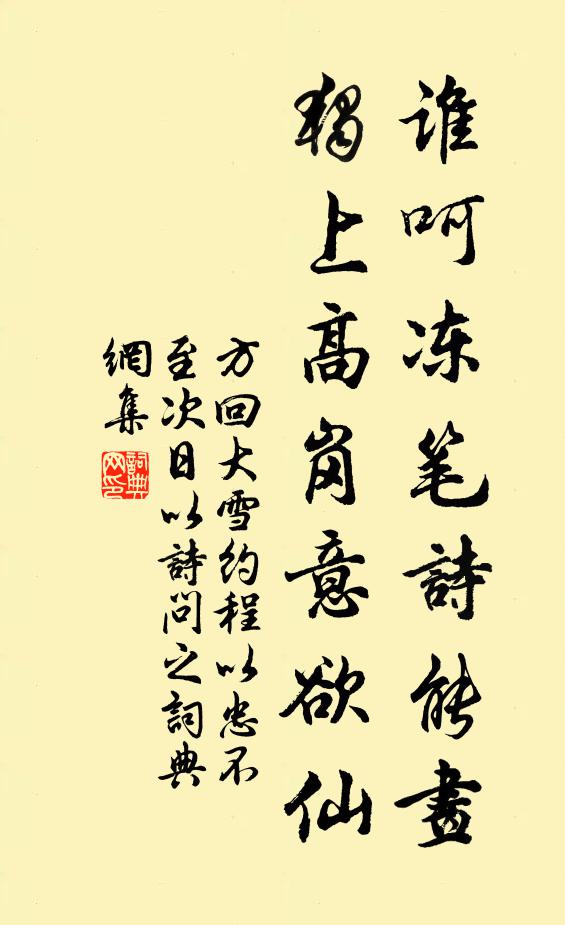 誰呵冻笔詩能畫
獨上高岗意欲仙
方回大雪約程以忠不
至次日以詩問之詞典
網集
詞典
网印